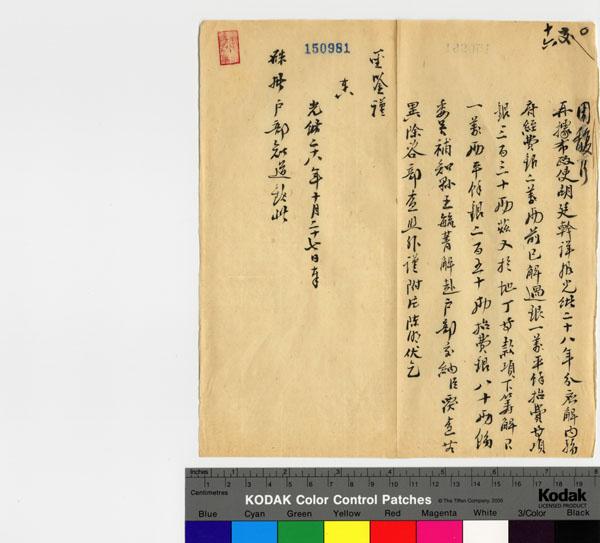 交
十六
周馥片
再據布政使胡廷幹詳報光緒二十八年分應解內務
府經費銀二萬兩前已解過銀一萬平餘抬費等項
銀三百三十兩茲又於地丁等款項下籌解銀
一萬兩平餘銀二百五十兩抬費銀八十兩飭
委候補知縣王毓菁解赴戶部交納臣覆查無
異除咨部查照外謹附片陳明伏乞
聖鑒謹
奏
光緒二十八年十月二十七日奉
硃批戶部知道欽此
150981
Inches
Centimetres
KODAK Color Control Patches
© The Tiffen Company, 2000
Kodak
LICENSED PRODUCT
Blue Cyan Green Yellow Red Magenta White 3/Color Black